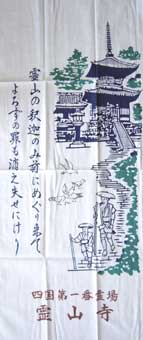 霊山の釈迦のみ前にめぐり来て
よろずの罪も消え失せにけり
四国第一番霊場
霊山寺